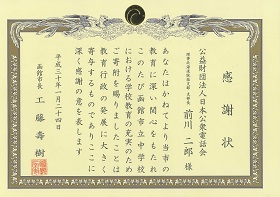 感謝状
公益財団法人日本公衆電話会
前川二郎 様
あなたはかねてより当市の
教育に深い関心をもたれ
このたび函館市立中学校
における学校教育の充実のため
ご寄附を賜りましたことは
教育行政の発展に大きく
寄与するものでありここに
深く感謝の意を表します
平成三十年一月二十四日
函館市長 工藤壽樹